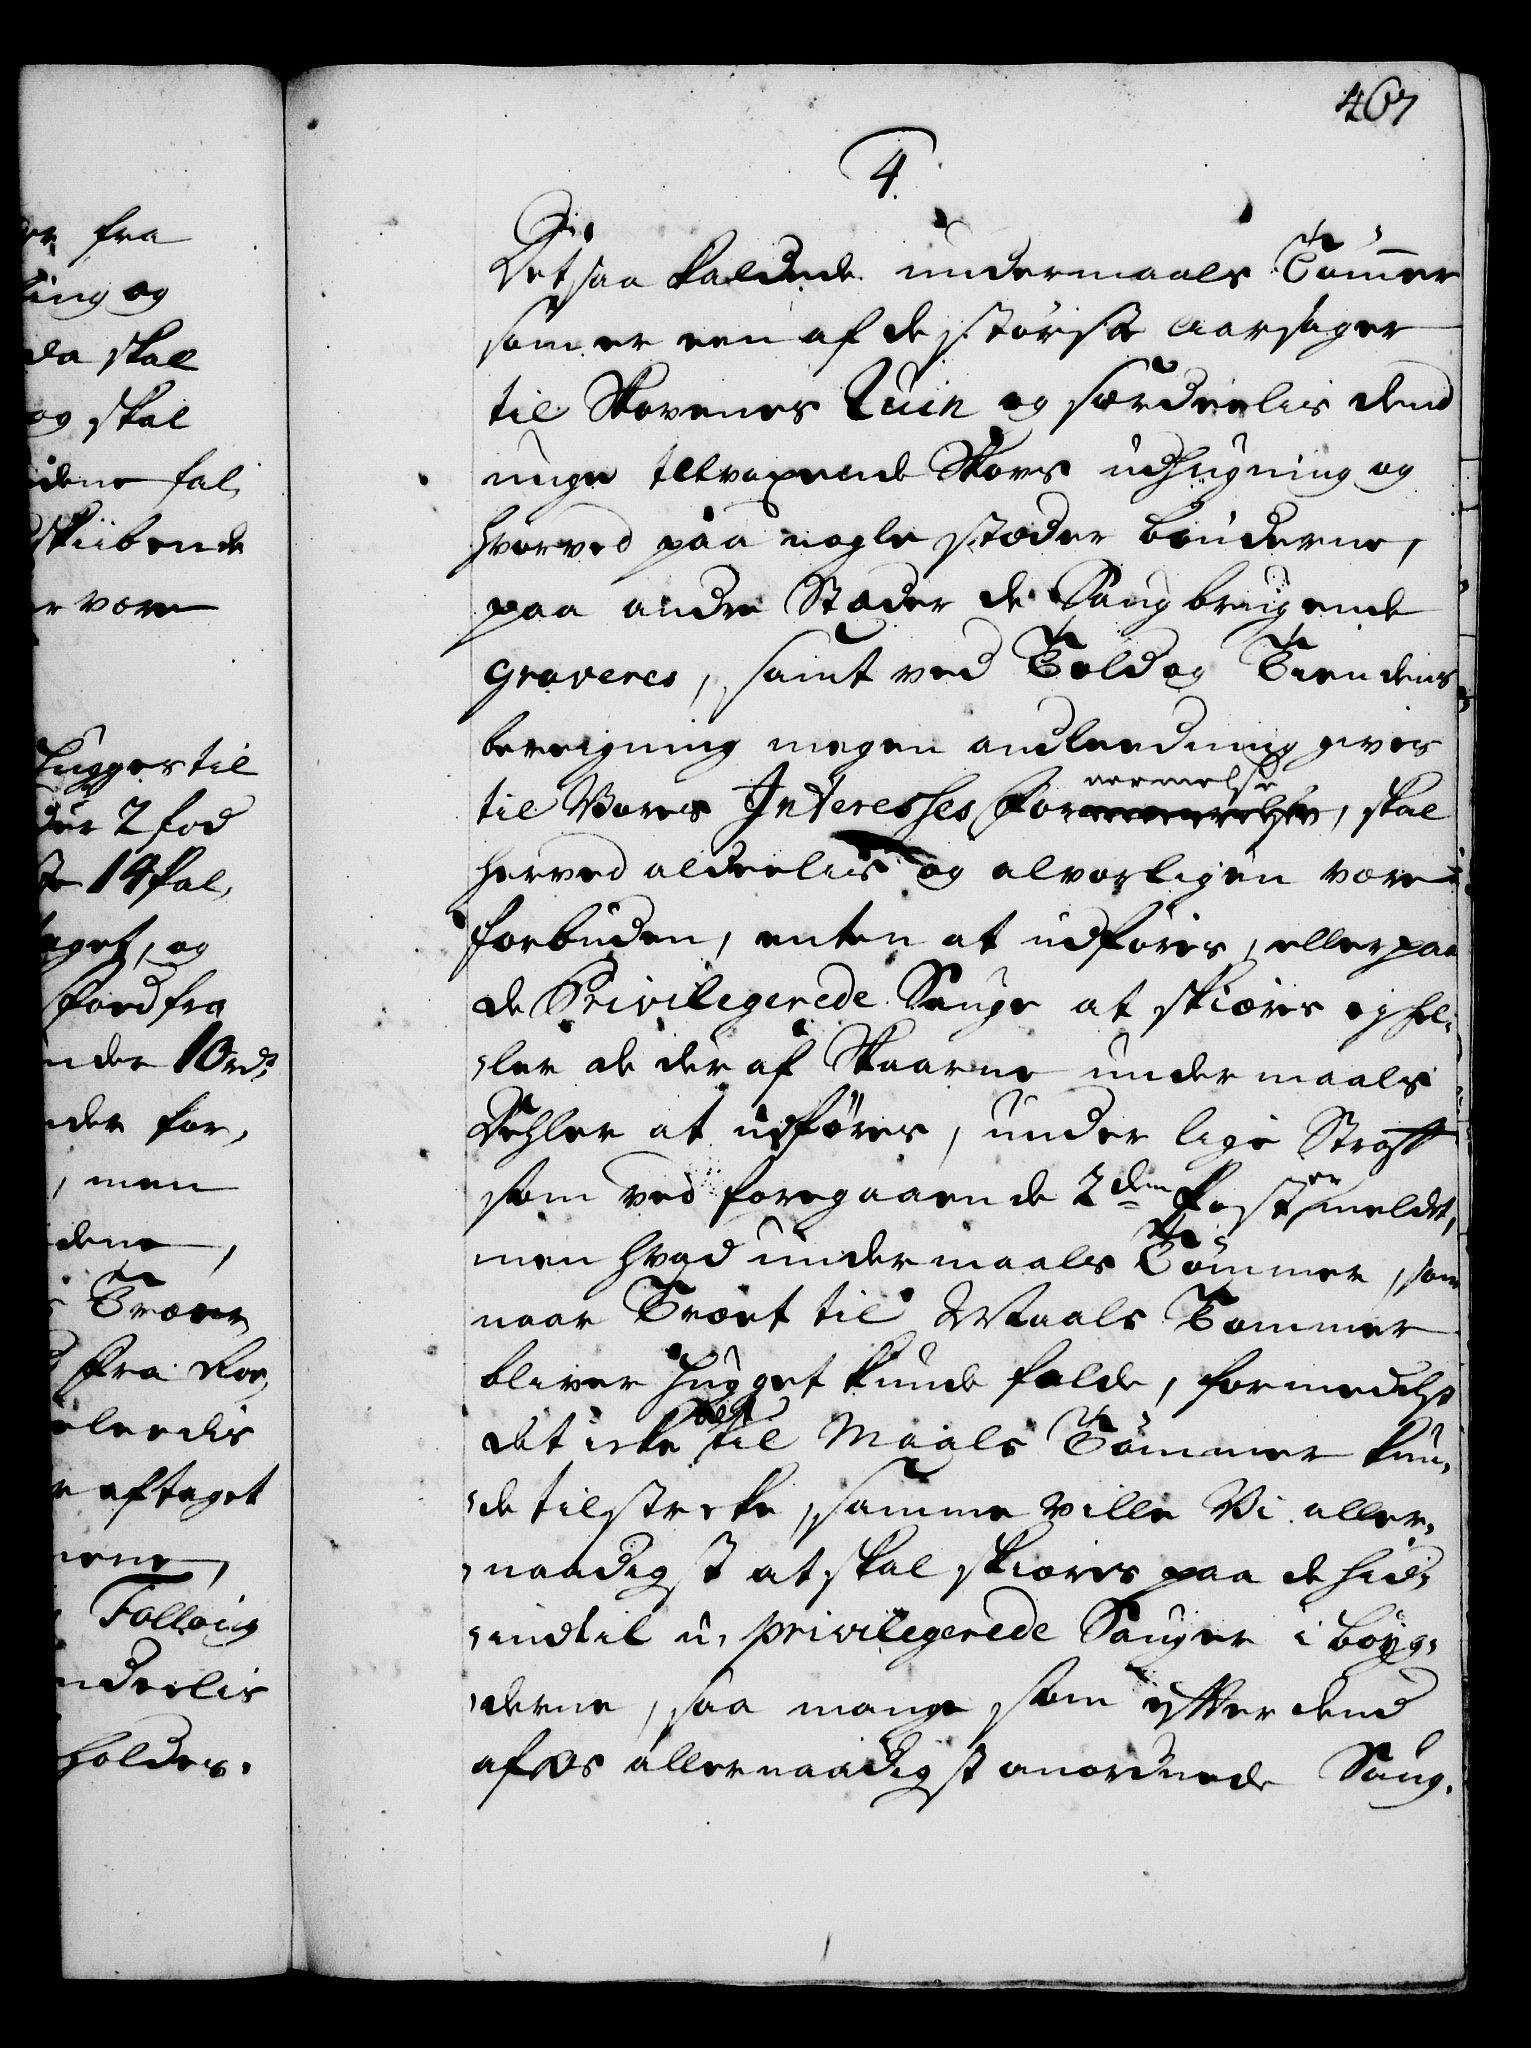 467
4.
Det saa kaldede undermaals Tømmer
som er een af de største Aarsager
til Skovenes Ruin og særdeelis dend
unge tilvoxende Skovs udhugning og
hvorved paa nogle stæder bønderne,
paa andre Stæder de Saugbrugende
graveres, samt ved Told og Tiendens
bereigning megen andleedning gives
til Vores Interesses fornermelse, skal
herved aldeelis og alvorligen være
forbuden, enten at udføres, eller paa
de Privilegerede Sauge at skiæres ej hel¬
ler de deraf Skaarne undermaals
Dehler at udføres, under lige Straff
som ved foregaaende 2den Post er meldt,
men hvad undermaals Tømmer, som
naar Træet til Maals Tømmer
bliver hugget kunde falde, formedelst
det icke alt til Maals Tømmer kun¬
de tilstrecke, samme ville Vi aller¬
naadigst at skal skiæres paa de hid¬
indtil u-privilegerede Sauger i bøyg¬
derne, saa mange som efter dend
af Os allernaadigst anordnede Saug-
fra
ing og
da skal
og skal
dene fal¬
skiibende
r være
hugges til
der 2 fod
14 Pal,
aget, og
foed fra
nder 10 rdr
nder for,
, men
dene,
Træer
fra Roe,
eleedis
r aftaget
nene,
Følloug
ndeelis
holdes.